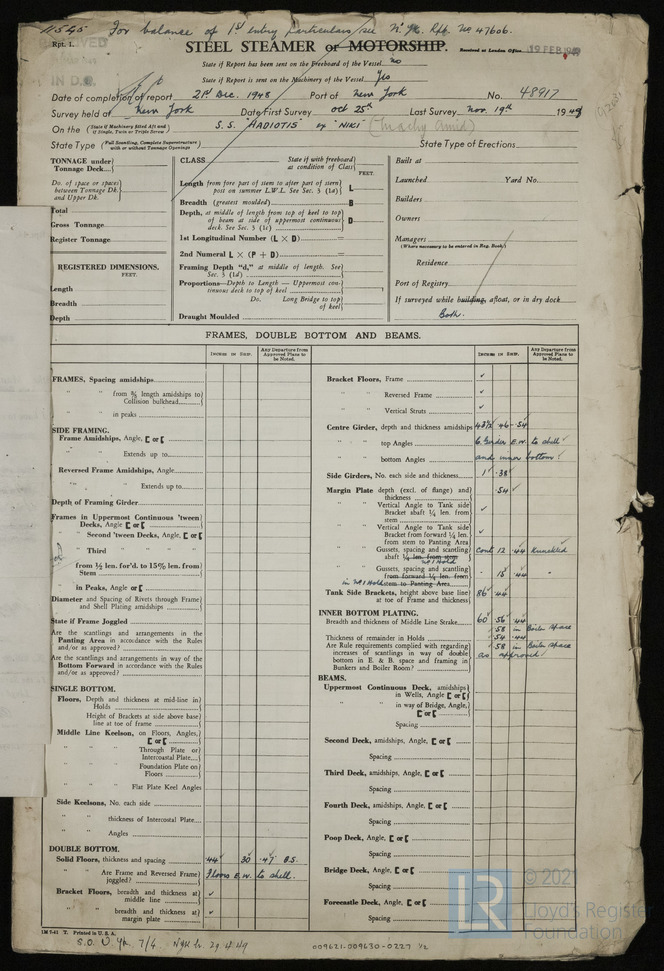 For balance of 1st entry particulars see N. Yk. Rpt. No 47606.
Rpt. 1.
STEEL STEAMER or MOTORSHIP.
Received at London Office 19 FEB 1949
State if Report has been sent on the Freeboard of the Vessel no
State if Report is sent on the Machinery of the Vessel Yes
Date of completion of report 21st Dec. 1948 Port of New York No. 48917
Survey held at New York Date, First Survey Oct 25th Last Survey Nov. 19th 1948
On the (State if Machinery fitted Aft and if Single, Twin or Triple Screw) S.S. "HADIOTIS" ex "NIKI"
State Type (Full Scantling, Complete Superstructure with or without Tonnage Openings) State Type of Erections
TONNAGE under Tonnage Deck
Do. of space or spaces between Tonnage Dk. and Upper Dk.
Total
Gross Tonnage
Register Tonnage
REGISTERED DIMENSIONS.
FEET.
Length
Breadth
Depth
CLASS State if with freeboard as condition of Class
FEET.
Length from fore part of stem to after part of stern post on summer L.W.L. See Sec. 5 (1a) L
Breadth (greatest moulded) B
Depth, at middle of length from top of keel to top of beam at side of uppermost continuous deck. See Sec. 5 (1c) D
1st Longitudinal Number (L × D) =
2nd Numeral L × (P + D) =
Framing Depth "d," at middle of length. See Sec. 5 (1d)
Proportions—Depth to Length — Uppermost continuous deck to top of keel
Do. Long Bridge to top of keel
Draught Moulded
Built at
Launched Yard No.
Builders
Owners
Managers
(Where necessary to be entered in Reg. Book)
Residence
Port of Registry
If surveyed while building, afloat, or in dry dock
Both.
FRAMES, DOUBLE BOTTOM AND BEAMS.
INCHES IN SHIP. Any Departure from Approved Plans to be Noted.
INCHES IN SHIP. Any Departure from Approved Plans to be Noted.
FRAMES, Spacing amidships
" " from 3/5 length amidships to Collision bulkhead
" " in peaks
SIDE FRAMING.
Frame Amidships, Angle, [ or [
" " Extends up to
Reversed Frame Amidships, Angle
" " " Extends up to
Depth of Framing Girder
Frames in Uppermost Continuous 'tween Decks, Angle [ or [
" Second 'tween Decks, Angle, [ or [
" Third " " "
" from 1/5 len. for'd. to 15% len. from Stem
" in Peaks, Angle or [
Diameter and Spacing of Rivets through Frame and Shell Plating amidships
State if Frame Joggled
Are the scantlings and arrangements in the Panting Area in accordance with the Rules and/or as approved?
Are the scantlings and arrangements in way of the Bottom Forward in accordance with the Rules and/or as approved?
SINGLE BOTTOM.
Floors, Depth and thickness at mid-line in Holds
Height of Brackets at side above base line at toe of frame
Middle Line Keelson, on Floors, Angles, [ or [
" " Through Plate or Intercostal Plate
" " Foundation Plate on Floors
" " Flat Plate Keel Angles
Side Keelsons, No. each side
" " thickness of Intercostal Plate
" " Angles
DOUBLE BOTTOM.
Solid Floors, thickness and spacing .44 30 .47 B.S.
" " Are Frame and Reversed Frame joggled? Floors E.W. to shell.
Bracket Floors, breadth and thickness at middle line ✓
" " breadth and thickness at margin plate ✓
Bracket Floors, Frame ✓
" " Reversed Frame ✓
" " Vertical Struts ✓
Centre Girder, depth and thickness amidships 43½ .46 .54
" " top Angles C. Girder E.W. to shell
" " bottom Angles and inner bottom.
Side Girders, No. each side and thickness 1 .38
Margin Plate depth (excl. of flange) and thickness .54
" " Vertical Angle to Tank side Bracket abaft ¼ len. from stem ✓
" " Vertical Angle to Tank side Bracket from forward ¼ len. from stem to Panting Area ✓
" " Gussets, spacing and scantling abaft ¼ len. from stem No 1 Hold Cont 12 .44 Knuckled
" " Gussets, spacing and scantling from forward ¼ len. from stem to Panting Area in No 1 Hold " 15 .44 "
Tank Side Brackets, height above base line at toe of Frame and thickness 86 .44
INNER BOTTOM PLATING.
Breadth and thickness of Middle Line Strake 60 .56 .44
.58 in Boiler space
Thickness of remainder in Holds .54 .44
.58 in Boiler space
Are Rule requirements complied with regarding increases of scantlings in way of double bottom in E. & B. space and framing in Bunkers and Boiler Room? as approved
BEAMS.
Uppermost Continuous Deck, amidships in Wells, Angle [ or [
" " in way of Bridge, Angle, [ or [
Spacing
Second Deck, amidships, Angle, [ or [
Spacing
Third Deck, amidships, Angle, [ or [
Spacing
Fourth Deck, amidships, Angle, [ or [
Spacing
Poop Deck, Angle, [ or [
Spacing
Bridge Deck, Angle, [ or [
Spacing
Forecastle Deck, Angle, [ or [
Spacing
Printed in U.S.A.
009621-009630-0227 ½
© 2021
Lloyd's Register
Foundation
LR